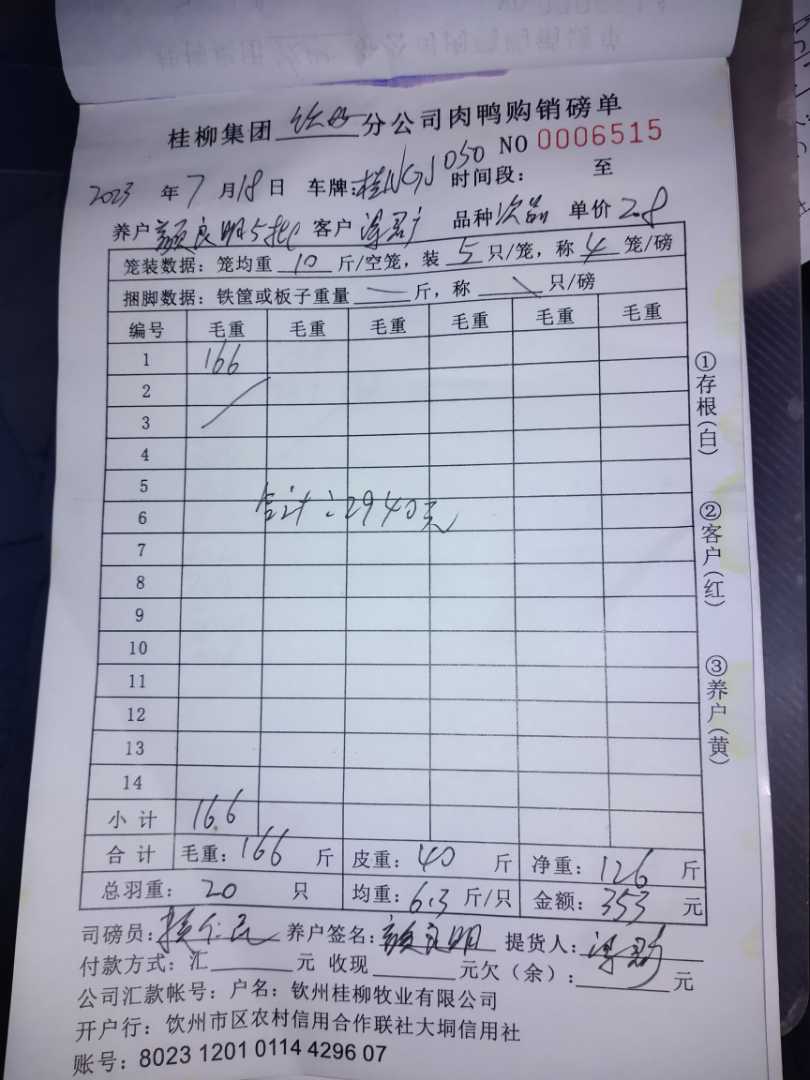 桂柳集团 钦州 分公司肉鸭购销磅单
NO 0006515
2023 年 7 月 18 日 车牌: 桂NGJ050 时间段: 至
养户 颜良明5批 客户 品种 次品 单价 2.8
笼装数据: 笼均重 10 斤/空笼, 装 5 只/笼, 称 4 笼/磅
捆脚数据: 铁筐或板子重量 — 斤, 称 \ 只/磅
编号 毛重 毛重 毛重 毛重 毛重 毛重
1 166
2
3
4
5
合计: 2940元
6
7
8
9
10
11
12
13
14
小计 166
合计 毛重: 166 斤 皮重: 40 斤 净重: 126 斤
总羽重: 20 只 均重: 6.3 斤/只 金额: 353 元
司磅员: 养户签名: 颜良明 提货人:
付款方式: 汇 元 收现 元欠(余): 元
公司汇款帐号: 户名: 钦州桂柳牧业有限公司
开户行: 饮州市区农村信用合作联社大垌信用社
账号: 8023 1201 0114 4296 07
①存根(白)
②客户(红)
③养户(黄)